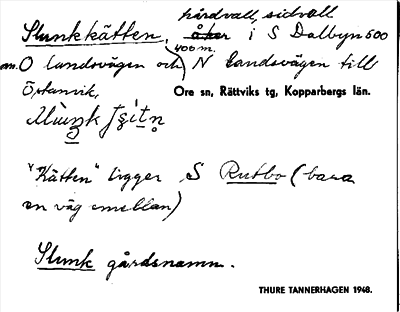 hårdvall, sidvall
Slunkkätten, åker i S Dalbyn 500
400 m.
m. O landsvägen och N landsvägen till
Östanvik,
Ore sn, Rättviks tg, Kopparbergs län.
"Kätten" ligger S Rutbo (bara
en väg emellan)
Slunk gårdsnamn.
THURE TANNERHAGEN 1948.